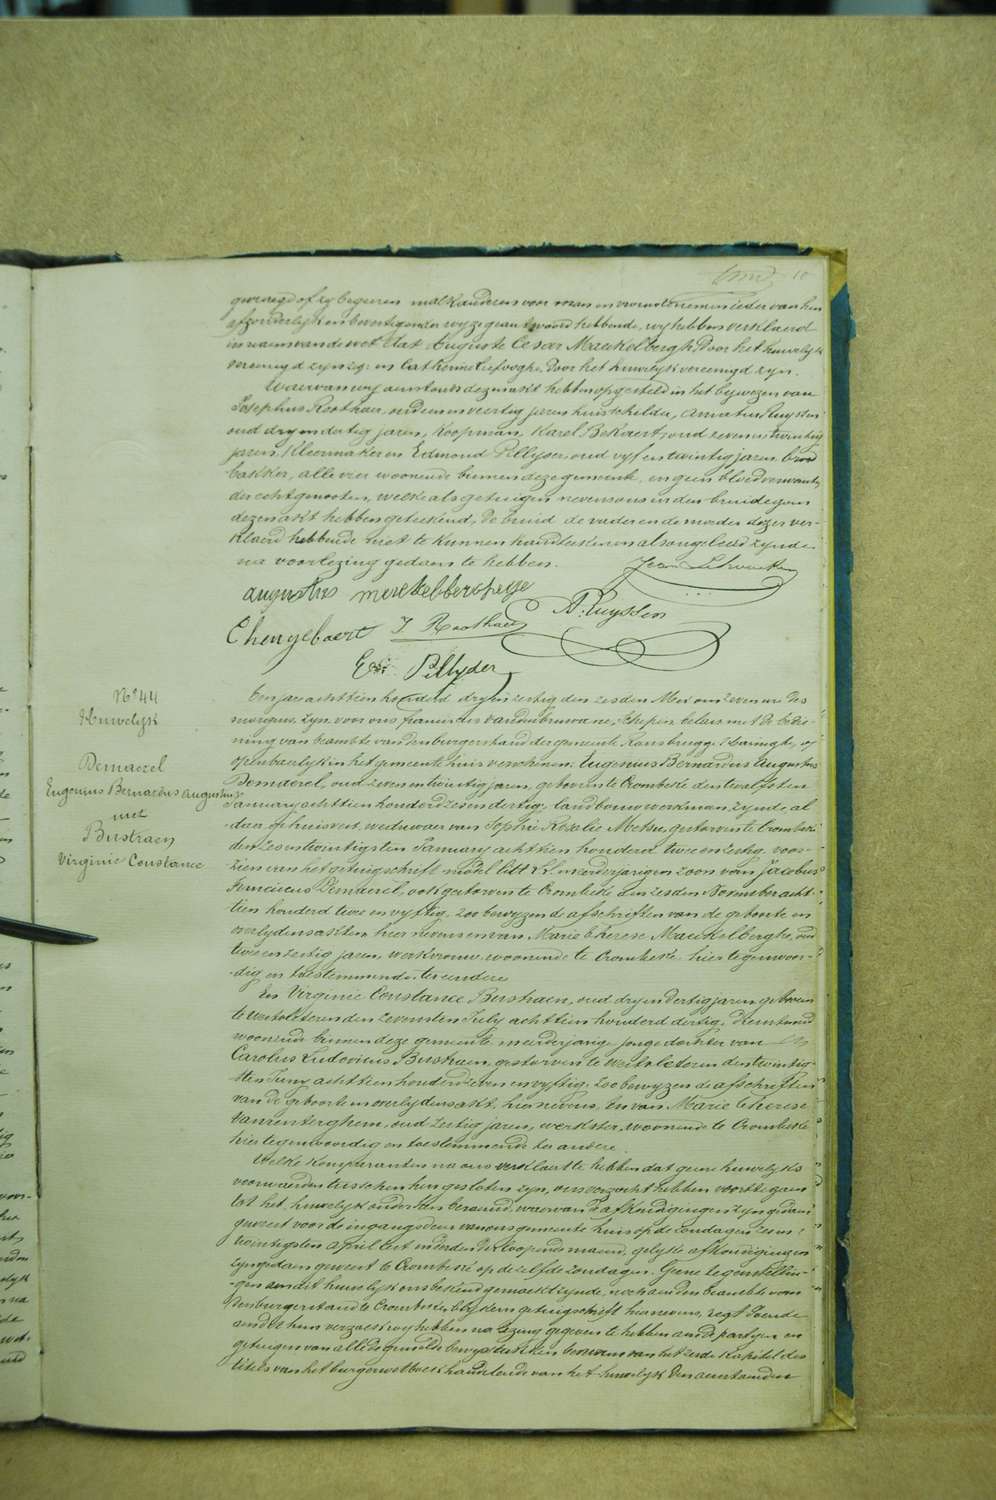 10
gevraegd of zy begeeren malkanderen voor man en vrouw te nemen ieder van hen
afzonderlyk en bevestigender wyze geantwoord hebbende, wy hebben verklaerd
in naem van de wet dat Auguste Cesar Maeckelbergh, door het huwelyk
vereenigd zyn
en Catherine Liefooghe, door het huwelyk vereenigd zyn.
Waervan wy aenstonds deze nakt hebben opgesteld in het bywezen van
Josephus Roothaer, oud en veertig jaren huisschilder, Amatus Ruyssen
oud dry en dertig jaren, koopman, Karel Bekaert, oud zeven en twintig
jaren, Kleermaker en Edmond Pillyser, oud vyf en twintig jaren brood
bakker, alle vier woonende binnen deze gemeente, en geen bloedverwanten
der echtgenooten, welke als getuigen nevens ons en den bruidegom
deze nakt hebben geteekend, de bruid de vader en de moeder dezer ver-
klaerd hebbende niet te kunnen handteekenen als ongeleerd zynde
na voorlezing gedaen te hebben.
augustus
A. Ruyssen
J Roothaer
Ed. Pillyser
N° 44
Huwelyk
Demaerel
Eugenius Bernardus Augustus
met
Bustraen
Virginie Constance
Een jaer achttien honderd dry en zestig den zesden Mei om zeven ure des
morgens, zyn voor ons franciscus Vandenbruwaene, Schepen belast met de bedie-
ning van beambte van den burgerstand der gemeente Rousbrugge-Haringhe, op
openbaerlyk in het gemeentehuis verschenen, Eugenius Bernardus Augustus
Demaerel, oud zeven en twintig jaren, geboren te Crombeke den twalfsten
January achttien honderd zes en dertig, landbouwwerkman, zynde al
daer gehuisvest, weduwaer van Sophie Rosalie Metsu, gestorven te Crombeke
den zes en twintigsten January achttien honderd twee en zestig, voor-
zien van het getuigschrift model litt. L.L. meerderjarigen zoon van Jacobus
Franciscus Demaerel, ook gestorven te Crombeke den zesden November acht-
tien honderd twee en vyftig, zoo bewyzen de afschriften van de geboorte en
overlydensakten hier nevens en van Marie Therese Maeckelberghe, oud
twee en zestig jaren, werkvrouw, woonende te Crombeke hier tegenwoor-
dig en toestemmende ter eendere
En Virginie Constance Bustraen, oud dry en dertig jaren geboren
te Westvleteren den zevensten July achttien honderd dertig, dienstmeid
woonende binnen deze gemeente meerderjarige jonge dochter van
Carolus Ludovicus Bustraen, gestorven te Westvleteren den twintig-
sten Juny achttien honderd zeven en vyftig, zoo bewyzen de afschriften
van de geboorte en overlydensakt, hier nevens, en van Marie Therese
Vanrenterghem, oud zestig jaren, werkster, woonende te Crombeke
hier tegenwoordig en toestemmende ter andere.
Welke komparanten na ons verklaert te hebben dat geene huwelyks
voorwaerden tusschen hen gesloten zyn, ons verzocht hebben voort te gaen
tot het huwelyk onder hen beraemd, waervan de afkondigingen zyn gedaen
geweest voor de ingangsdeur van ons gemeentehuis op de zondagen zes en
twintigsten April lest en derden der loopende maend, gelyke afkondigingen
zyn gedaen geweest te Crombeke op dezelfde zondagen. Geene tegenstellin-
gen aen dit huwelyk ons bekend gemaekt zynde, noch aen den beambte van
den burgerstand te Crombeke blykens getuigschrift hier nevens, regt doende
aen hun verzoek wy hebben na lezing gegeven te hebben aen de partyen en
getuigen van alle de gemelde bewysstukken benevens van het zesde kapittel des
titels van het burgerwetboek handelende van het huwelyk den aenstaenden